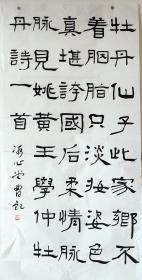 牡丹仙子此家鄉不
着胭脂只淡妝姿色
真堪誇國后柔情脈
脈見姚黃王學仲牡
丹詩一首